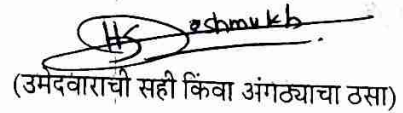 HS Deshmukh
(उमेदवाराची सही किंवा अंगठ्याचा ठसा)